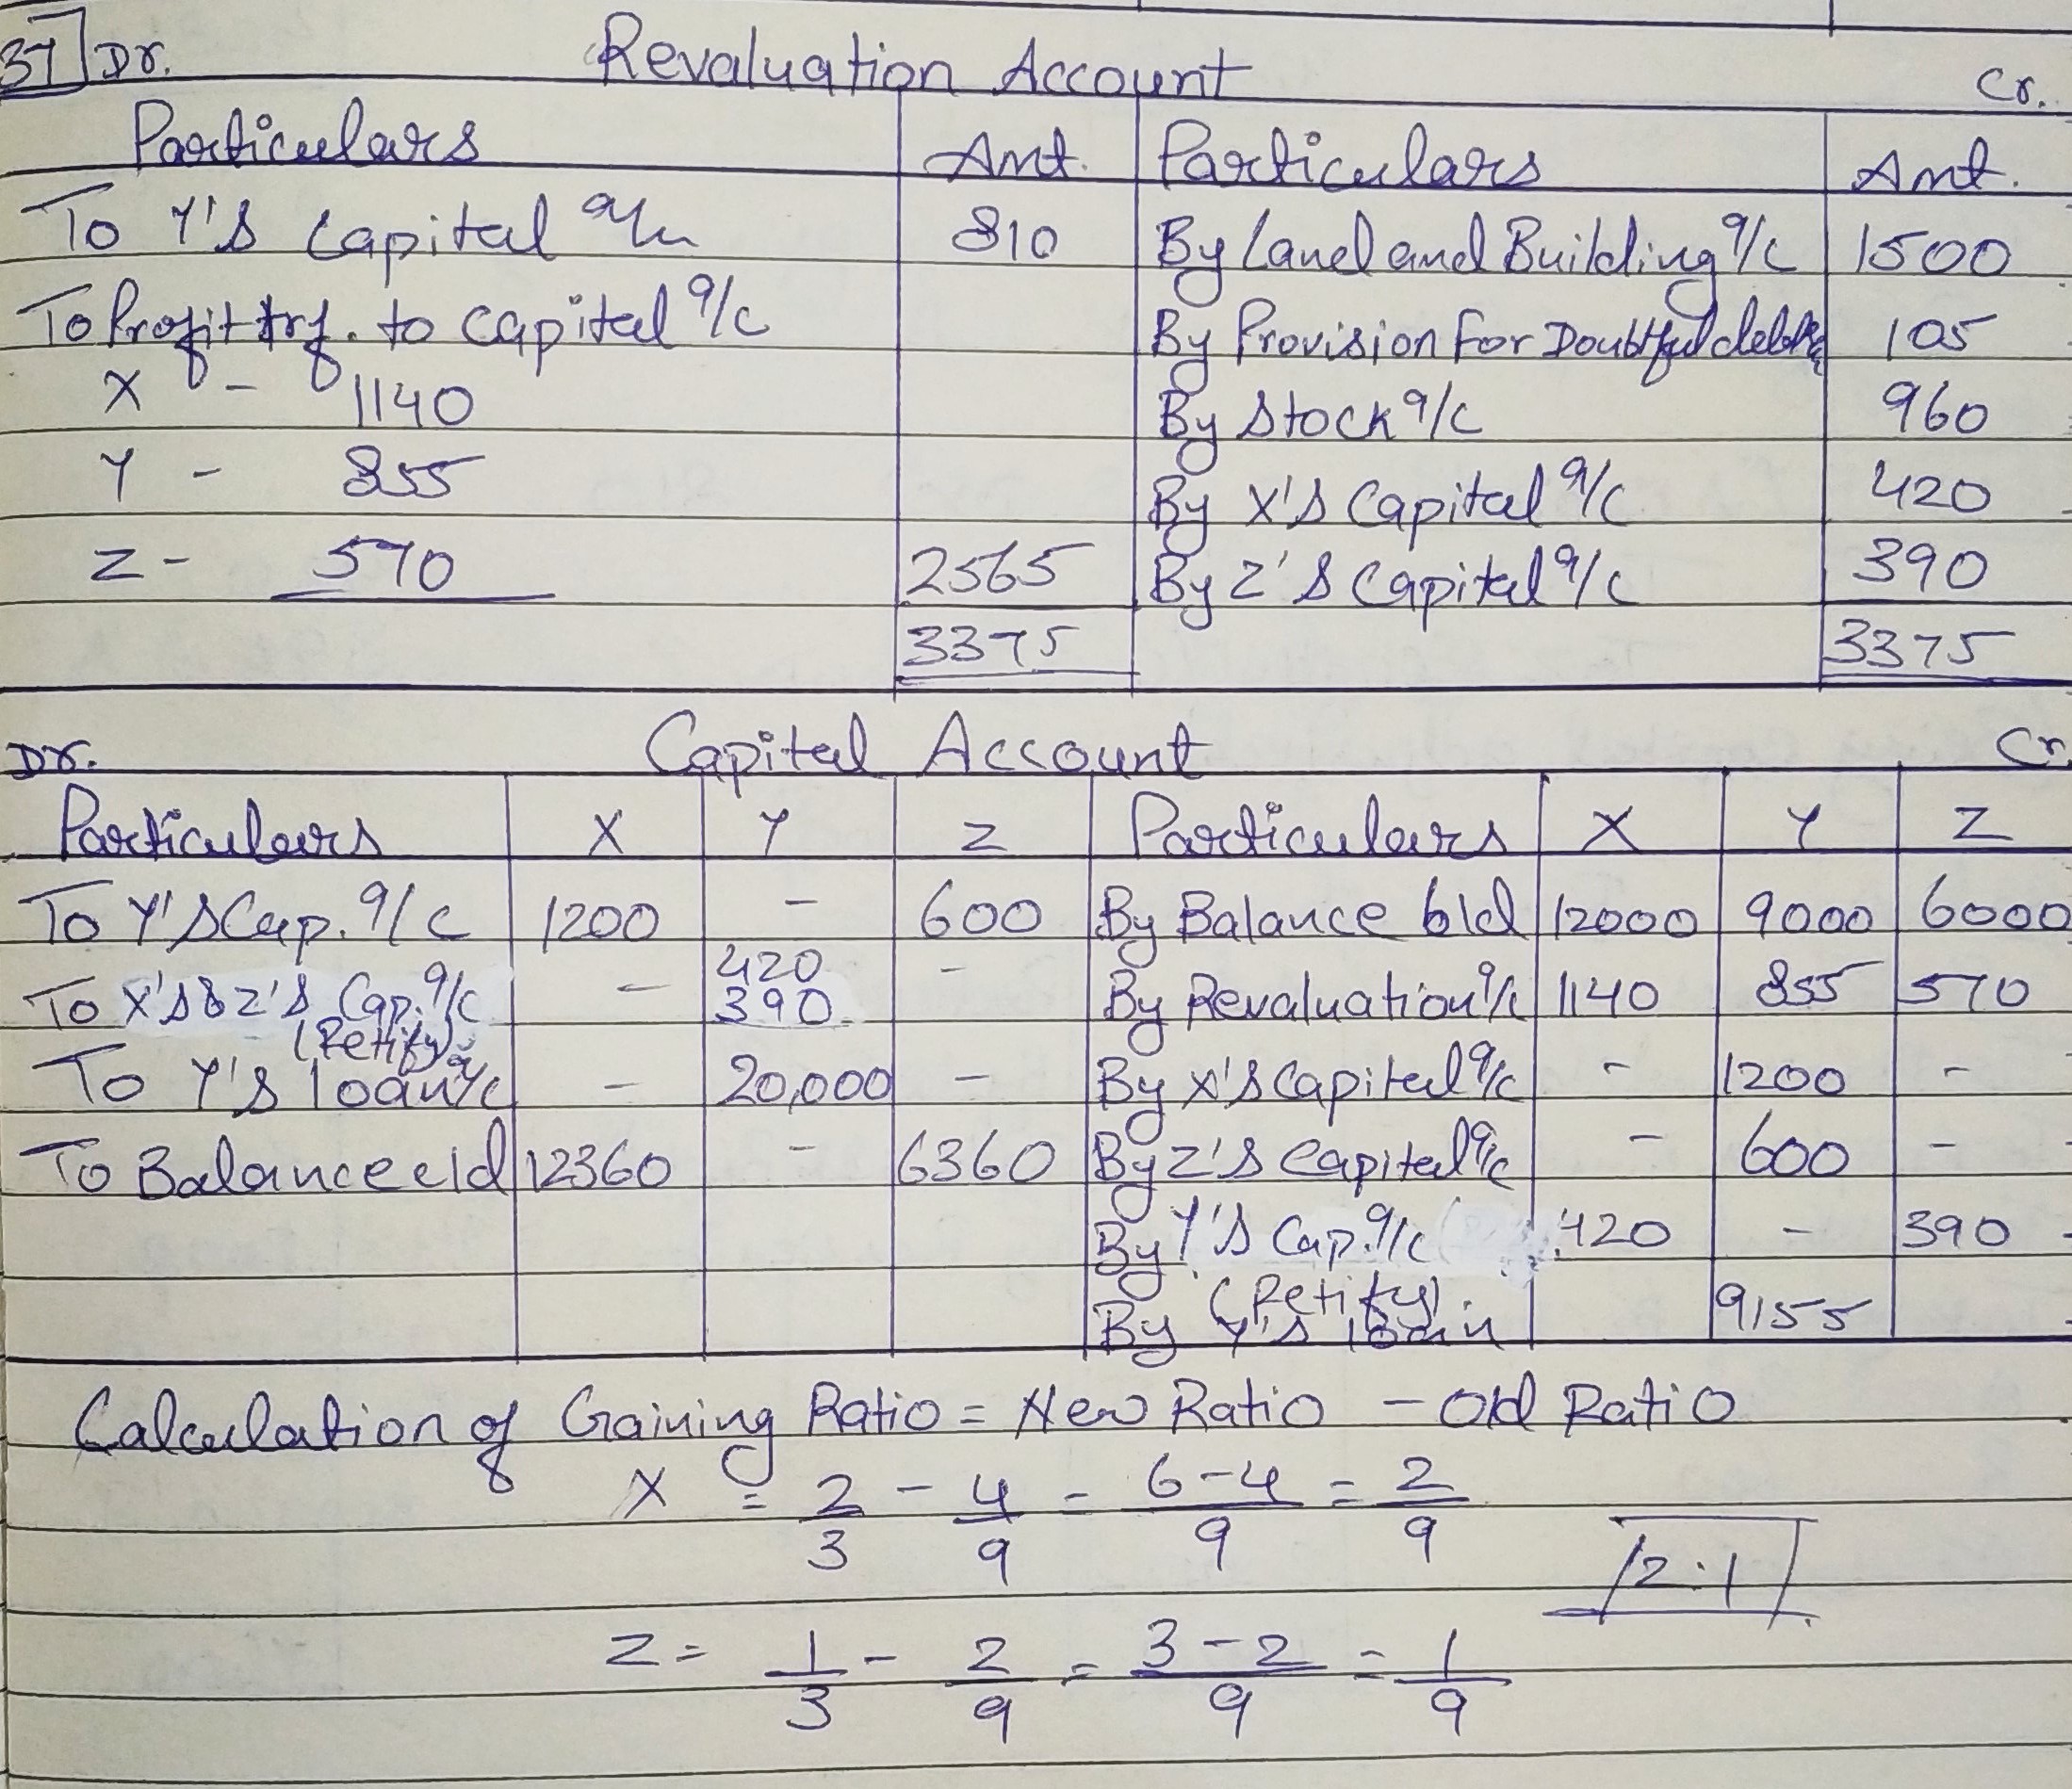 37 Dr. Revaluation Account Cr.
Particulars Amt. Particulars Amt.
To Y'S Capital a/c 810 By Land and Building a/c 1500
To Profit trf. to capital a/c By Provision For Doubtful debts 105
X - 1140 By Stock a/c 960
Y - 855 By X'S Capital a/c 420
Z - 570 2565 By Z'S Capital a/c 390
3375 3375
Dr. Capital Account Cr.
Particulars X Y Z Particulars X Y Z
To Y'S Cap. a/c 1200 - 600 By Balance b/d 12000 9000 6000
To X'S & Z'S Cap. a/c - 420 - By Revaluation a/c 1140 855 570
390
(Retify)
To Y'S loan a/c - 20,000 - By X'S Capital a/c - 1200 -
To Balance c/d 12360 - 6360 By Z'S Capital a/c - 600 -
By Y'S Cap. a/c 420 - 390
(Retify)
By Y'S loan 9155
Calculation of Gaining Ratio = New Ratio - Old Ratio
X = 2/3 - 4/9 = 6-4/9 = 2/9
2:1
Z = 1/3 - 2/9 = 3-2/9 = 1/9